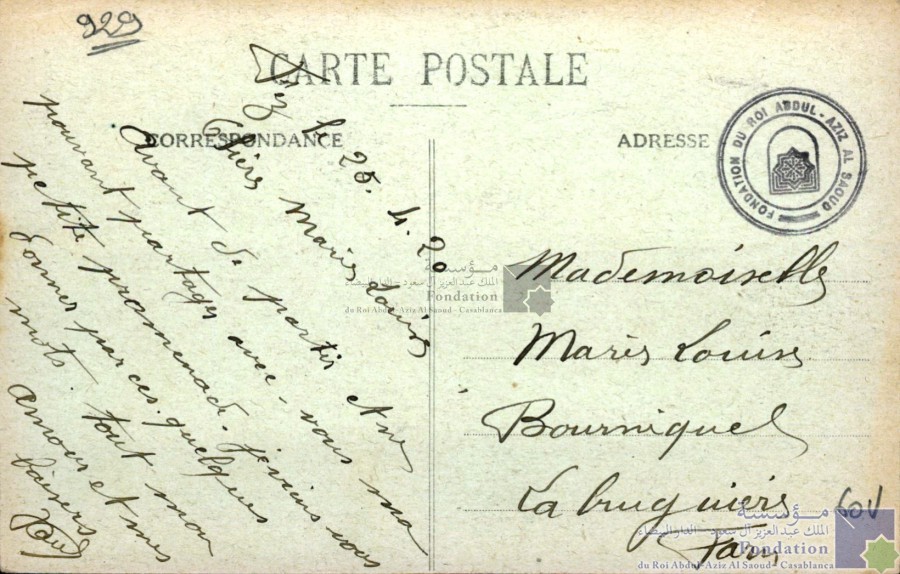 929
CARTE POSTALE
CORRESPONDANCE
ADRESSE
FONDATION DU ROI ABDUL-AZIZ AL SAOUD
Fez le 25.4.20
Chère Marie Louise
Avant de partir et ne
pouvant partager avec vous ma
petite promenade. Je viens vous
donner par ces quelques
mots tout mon
amour et mes
baisers
Paul
Mademoiselle
Marie Louise
Bourniquel
Labruguière
Tarn
601
مؤسسة
الملك عبد العزيز آل سعود - الدار البيضاء
Fondation
du Roi Abdul-Aziz Al Saoud - Casablanca
مؤسسة
الملك عبد العزيز آل سعود - الدار البيضاء
Fondation
du Roi Abdul-Aziz Al Saoud - Casablanca